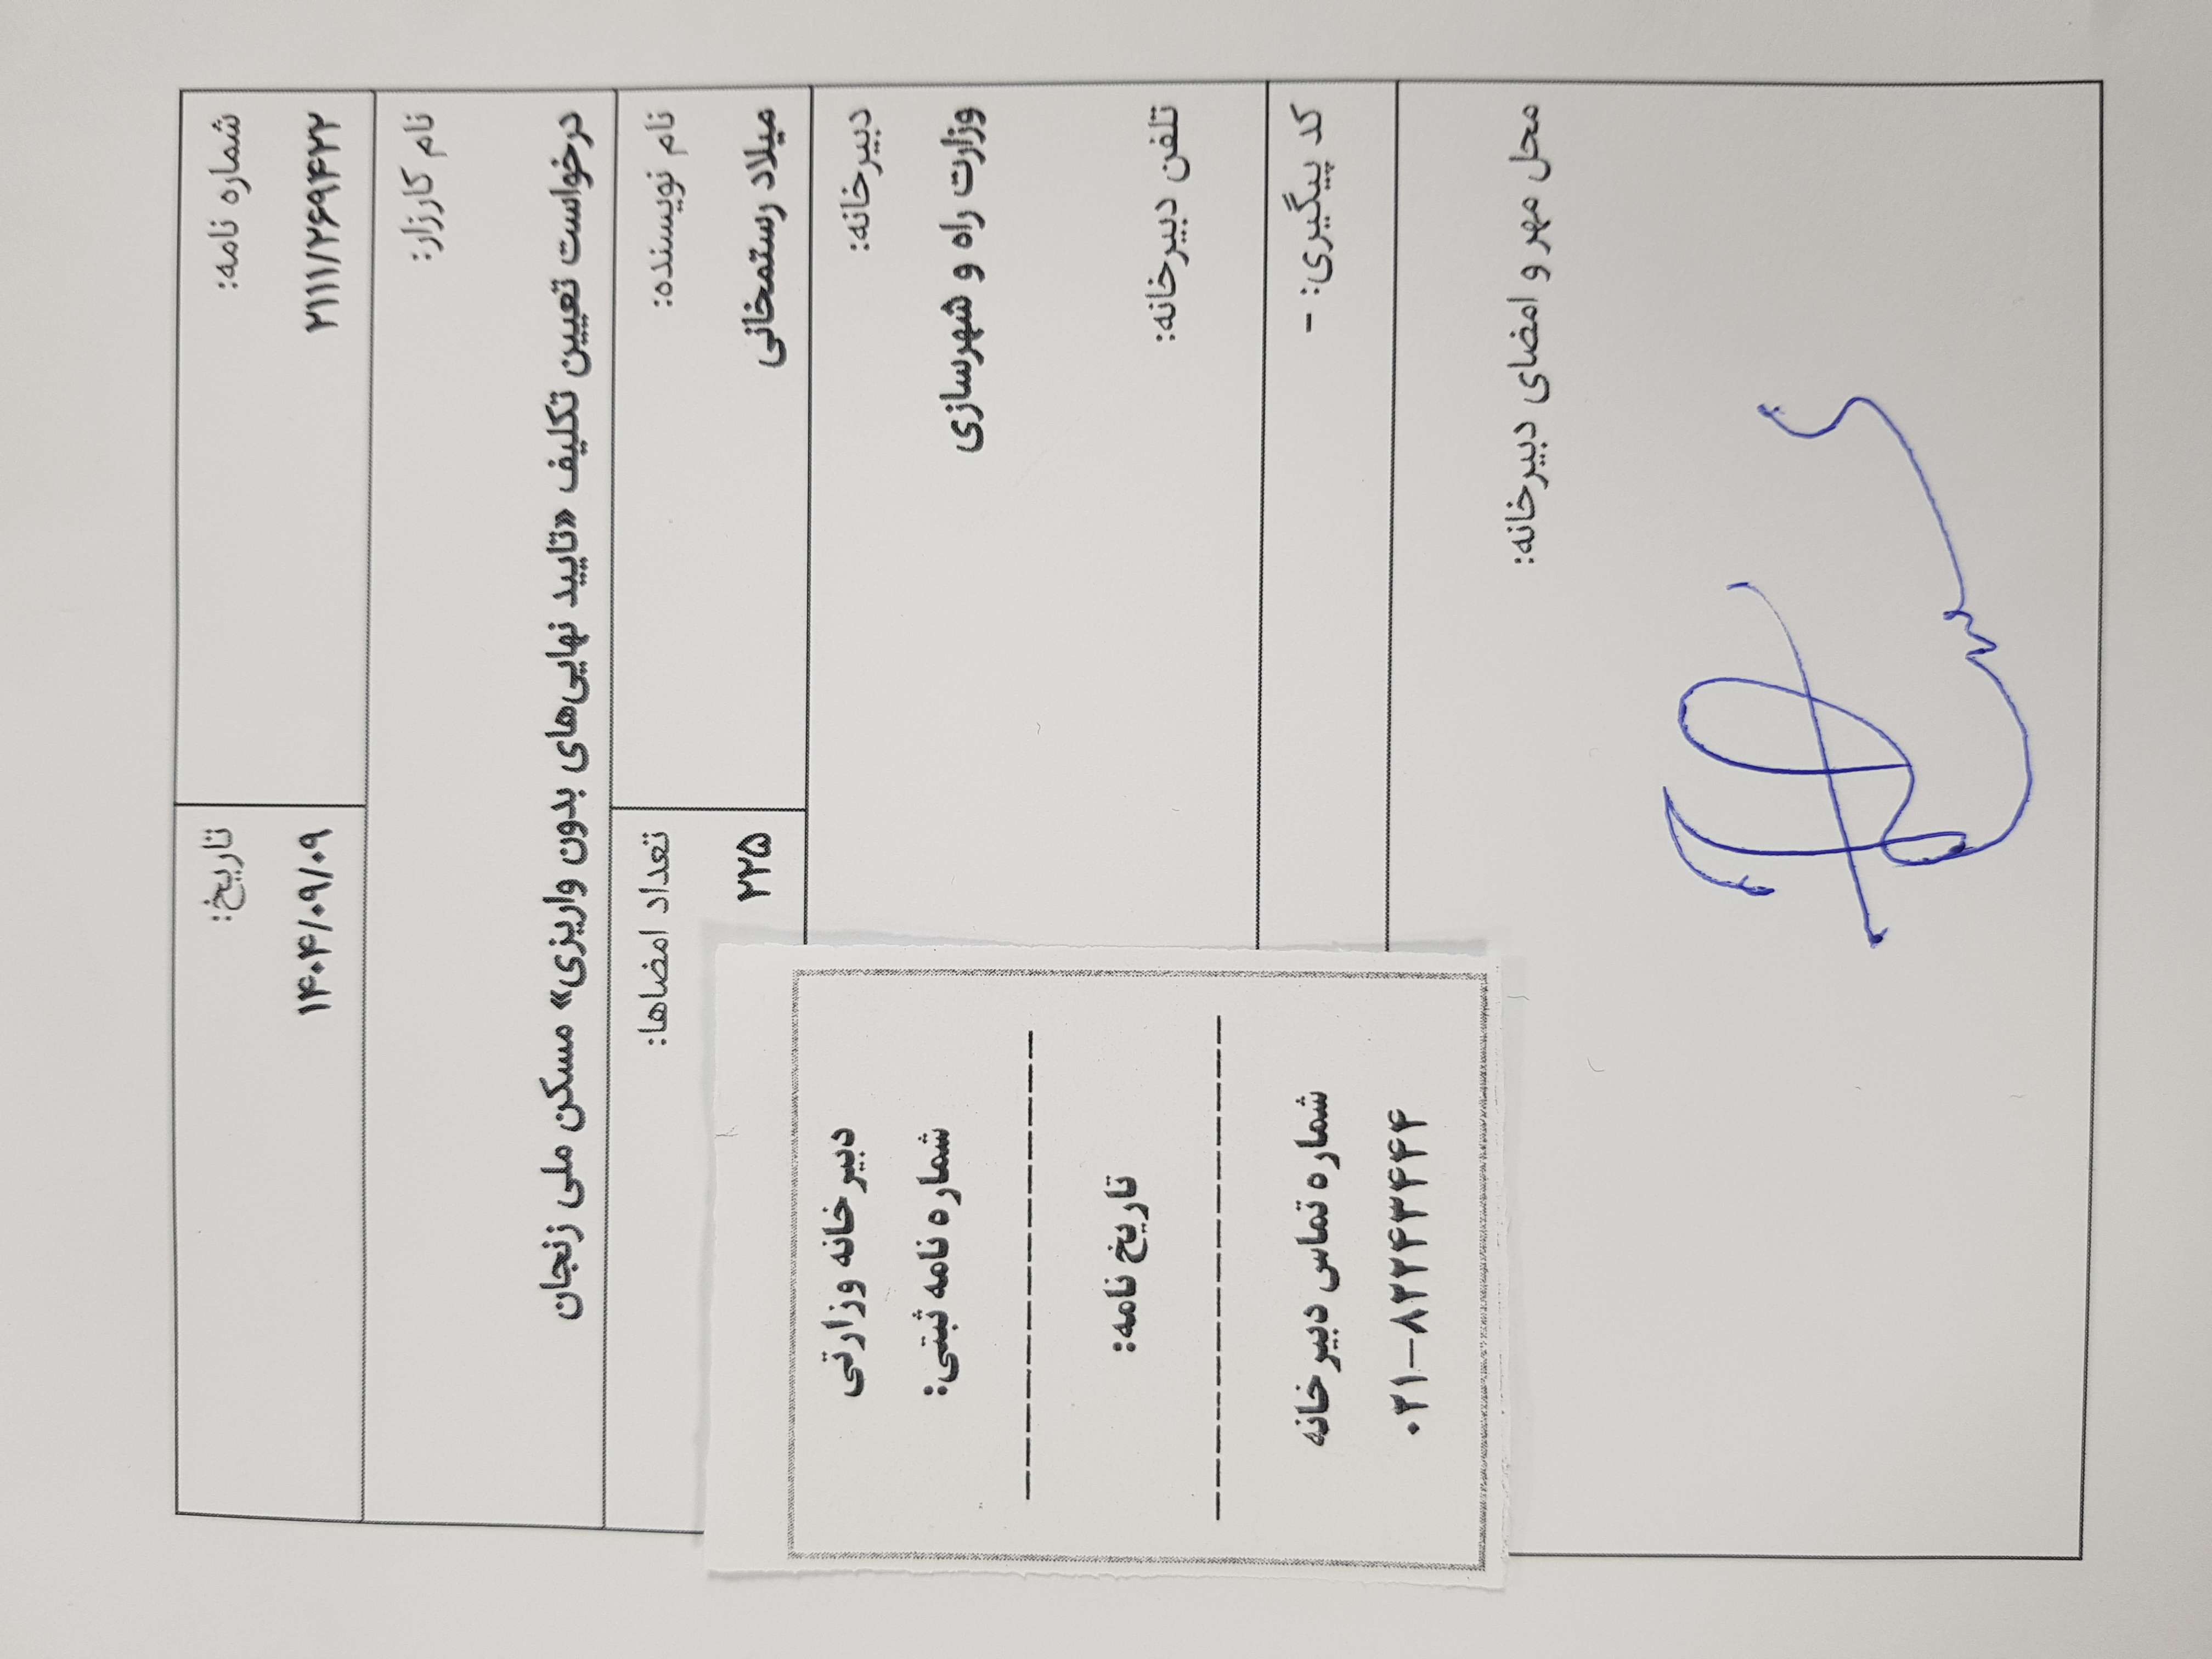 شماره نامه:
۲۱۱۱/۲۶۹۴۲۲
تاریخ:
۱۴۰۴/۰۹/۰۹
نام کارزار:
درخواست تعیین تکلیف «تایید نهایی‌های بدون واریزی» مسکن ملی زنجان
نام نویسنده:
میلاد رستمخانی
تعداد امضاها:
۲۲۵
دبیرخانه:
وزارت راه و شهرسازی
تلفن دبیرخانه:
کد پیگیری: -
محل مهر و امضای دبیرخانه:
دبیرخانه وزارتی
شماره نامه ثبتی:
تاریخ نامه:
شماره تماس دبیرخانه
۰۲۱-۸۲۲۴۳۴۴۴